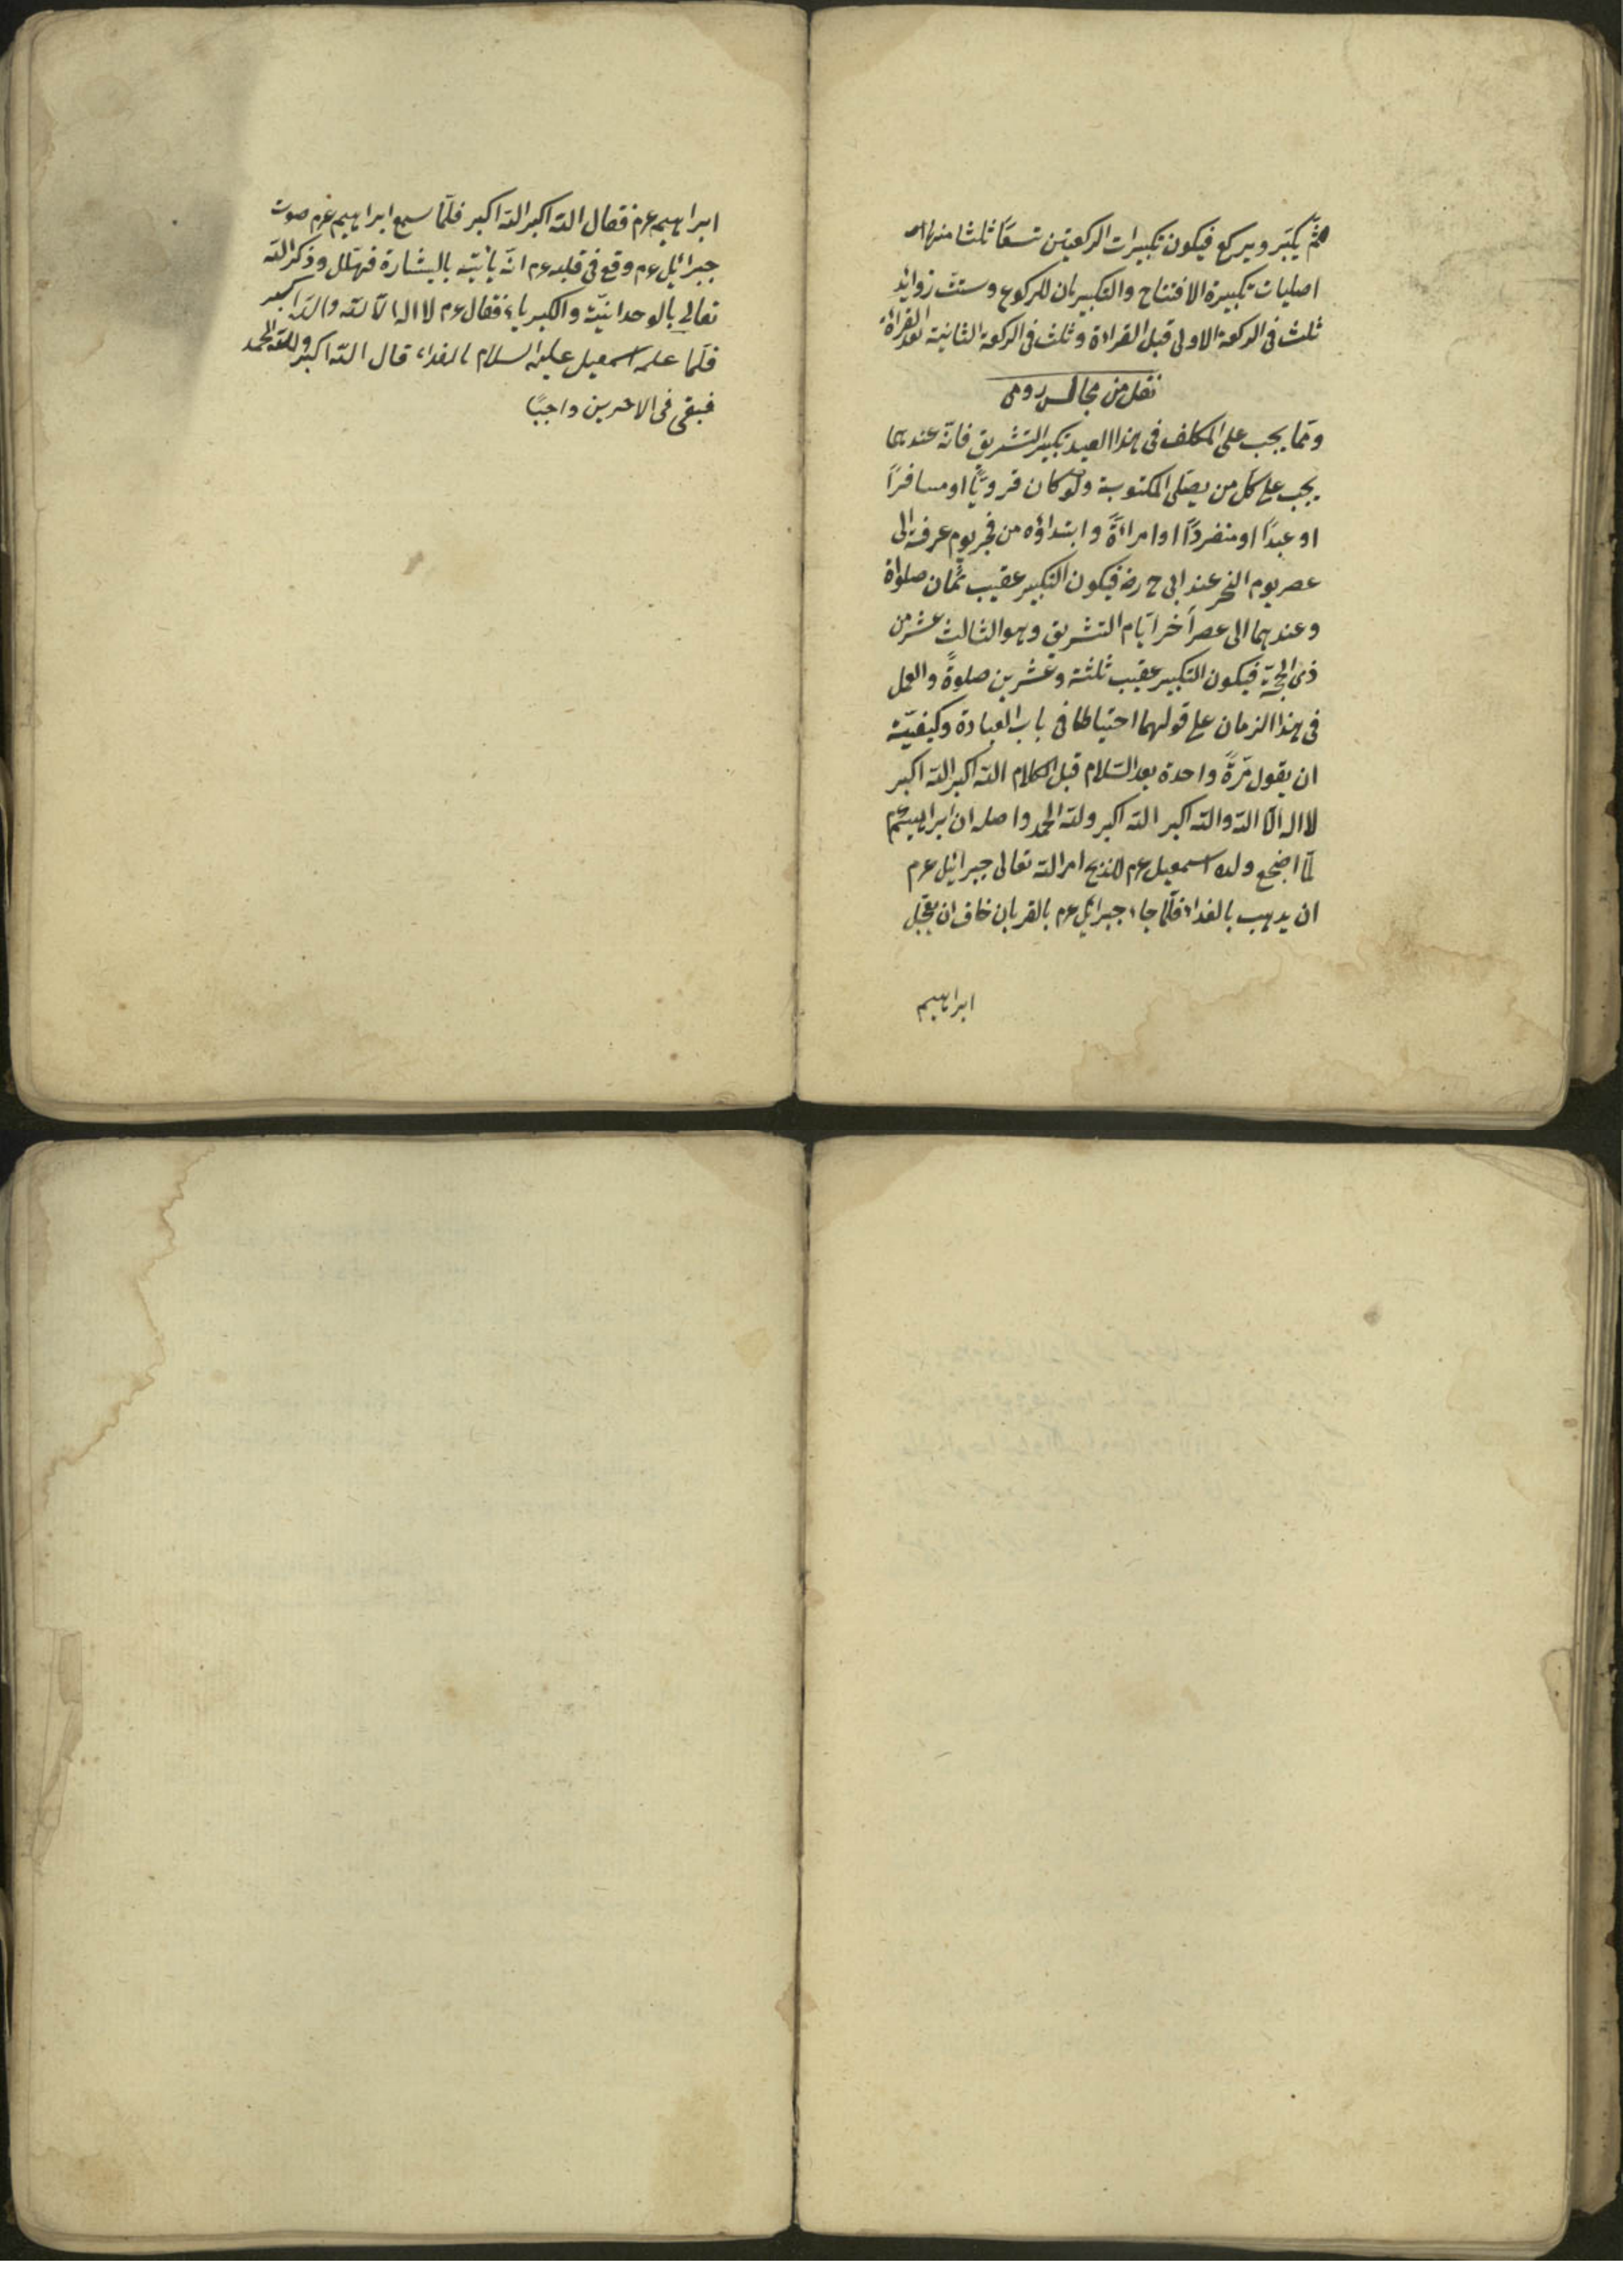 ثمّ يكبّر ويركع فيكون تكبيرات الركعتين تسعًا ثلثا منها
اصليات تكبيرة الافتتاح والتكبيرتان للركوع وستّ زوائد
ثلث فى الركعة الاولى قبل القراءة وثلث فى الركعة الثانية بعد القراءة
نقل من مجالس رومى
وممّا يجب على المكلف فى هذا العيد تكبير التشريق فانّه عندهما
يجب على كلّ من يصلّى المكتوبة ولو كان قرويًّا او مسافرًا
او عبدًا او منفردًا او امراءةً وابتداؤه من فجر يوم عرفة الى
عصر يوم النحر عند ابى ح رضه فيكون التكبير عقيب ثمان صلواة
وعندهما الى عصر اخر ايّام التشريق وهو الثالث عشر من
ذى الحجّة فيكون التكبير عقيب ثلثة وعشرين صلوةً والعمل
فى هذا الزمان على قولهما احتياطا فى باب العبادة وكيفيّته
ان يقول مرّةً واحدة بعد السّلام قبل الكلام الله اكبر الله اكبر
لا اله الّا الله والله اكبر الله اكبر ولله الحمد واصله ان ابراهيم عم
لمّا اضجع ولده اسمعيل عم للذبح امر الله تعالى جبرائيل عم
ان يذهب بالفداء فلمّا جاء جبرائيل عم بالقربان خاف ان يعجّل
ابراهيم
ابراهيم عم فقال الله اكبر الله اكبر فلمّا سمع ابراهيم عم صوت
جبرائيل عم وقع فى قلبه عم انّه يأتيه بالبشارة فهلّل وذكر الله
تعالى بالوحدانيّة والكبرياء فقال عم لا اله الّا الله والله اكبر
فلمّا علم اسمعيل عليه السلام بالفداء قال الله اكبر ولله الحمد
فبقى فى الاخرين واجبًا